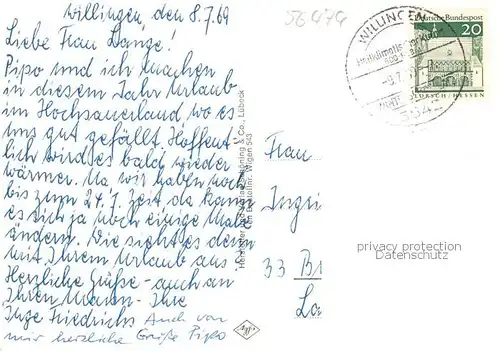 Willingen, den 8.7.69
Liebe Frau Lange!
Pipo und ich machen
in diesem Jahr Urlaub
im Hochsauerland wo es
uns gut gefällt. Hoffent-
lich wird es bald wieder
wärmer. Na wir haben noch
bis zum 24.7. Zeit, da kann
es sich ja noch einige Male
ändern. Wie sieht es denn
mit Ihrem Urlaub aus?
Herzliche Grüße - auch an
Ihren Mann - Ihre
Inge Friedrichs Auch von
mir herzliche Grüße Pipo
56474
WILLINGEN
Deutsche Bundespost
20
LORSCH/HESSEN
Schöning & Co., Lübeck
Frau
Ingri
33 B
La
privacy protection
Datenschutz